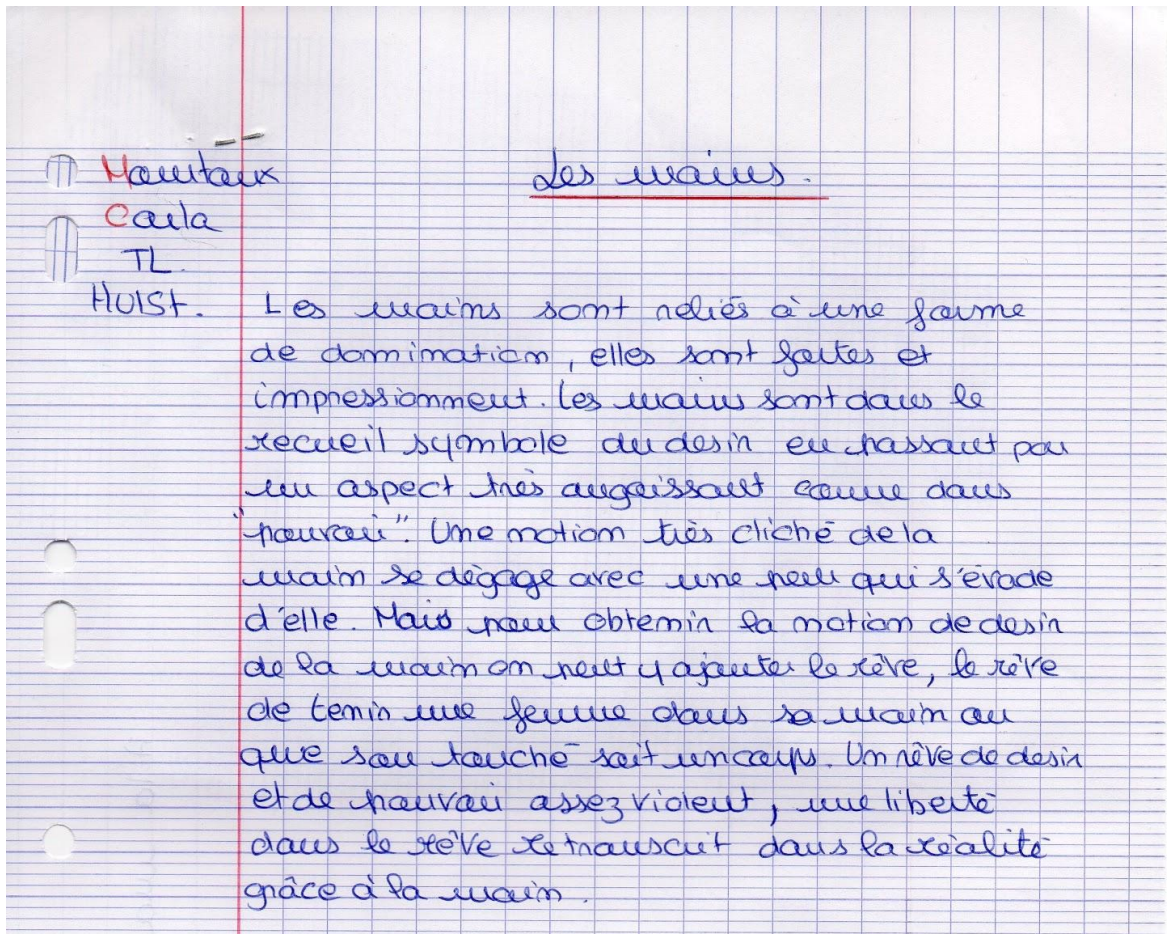 Les mains.
Carla
TL.
Les mains sont reliés à une forme
de domination, elles sont fortes et
impressionnent. Les mains sont dans le
recueil symbole du desir en passant par
un aspect très angoissant comme dans
"pouvoir". Une notion très cliché de la
main se dégage avec une peur qui s'évade
d'elle. Mais pour obtenir la notion de desir
de la main on peut y ajouter le rêve, le rêve
de tenir une femme dans sa main ou
que son touché soit un corps. Un rêve de desir
et de pouvoir assez violent, une liberté
dans le rêve retranscrit dans la réalité
grâce à la main.